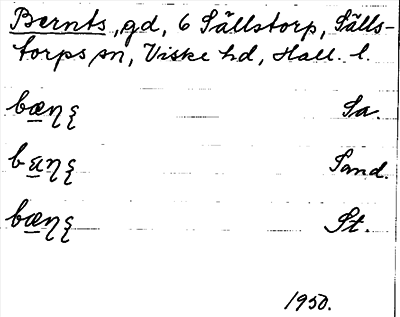 Bernts, gd, 6 Sällstorp, Sälls-
torps sn, Viske hd, Hall. l.
Sa.
Sand.
St.
1950.